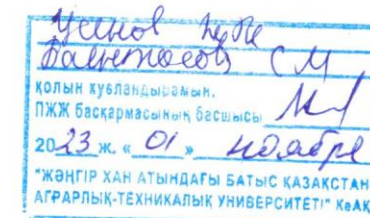 Баянтасов С М
қолын куәландырамын.
ПЖЖ басқармасының басшысы
2023 ж. « 01 » ноября
"ЖӘҢГІР ХАН АТЫНДАҒЫ БАТЫС ҚАЗАҚСТАН
АГРАРЛЫҚ-ТЕХНИКАЛЫҚ УНИВЕРСИТЕТІ" КеАҚ